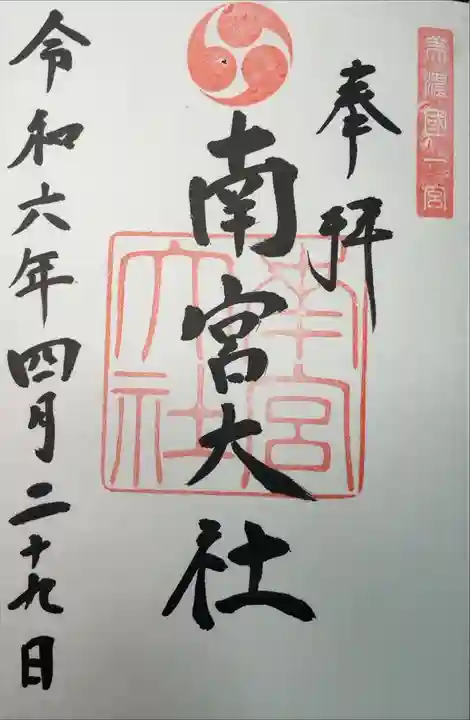 美濃國一宮
奉拝
南宮大社
南宮大社
令和六年四月二十九日